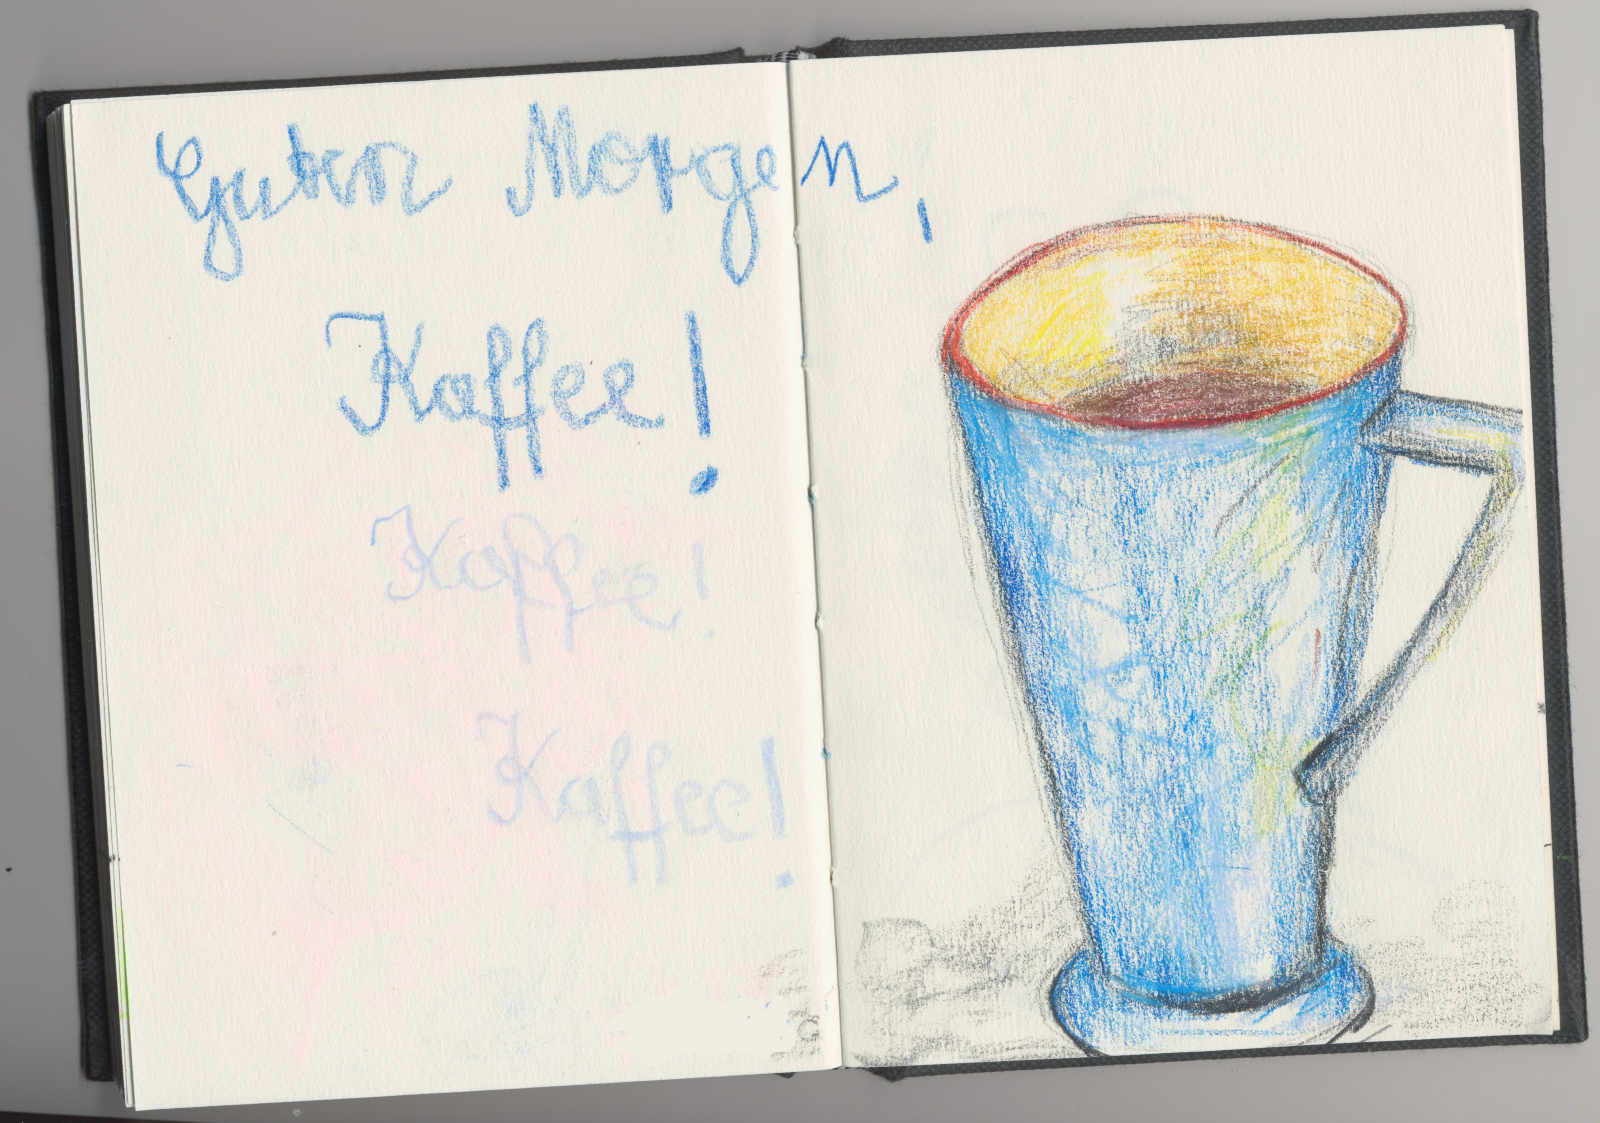 Guten Morgen,
Kaffee!
Kaffee!
Kaffee!